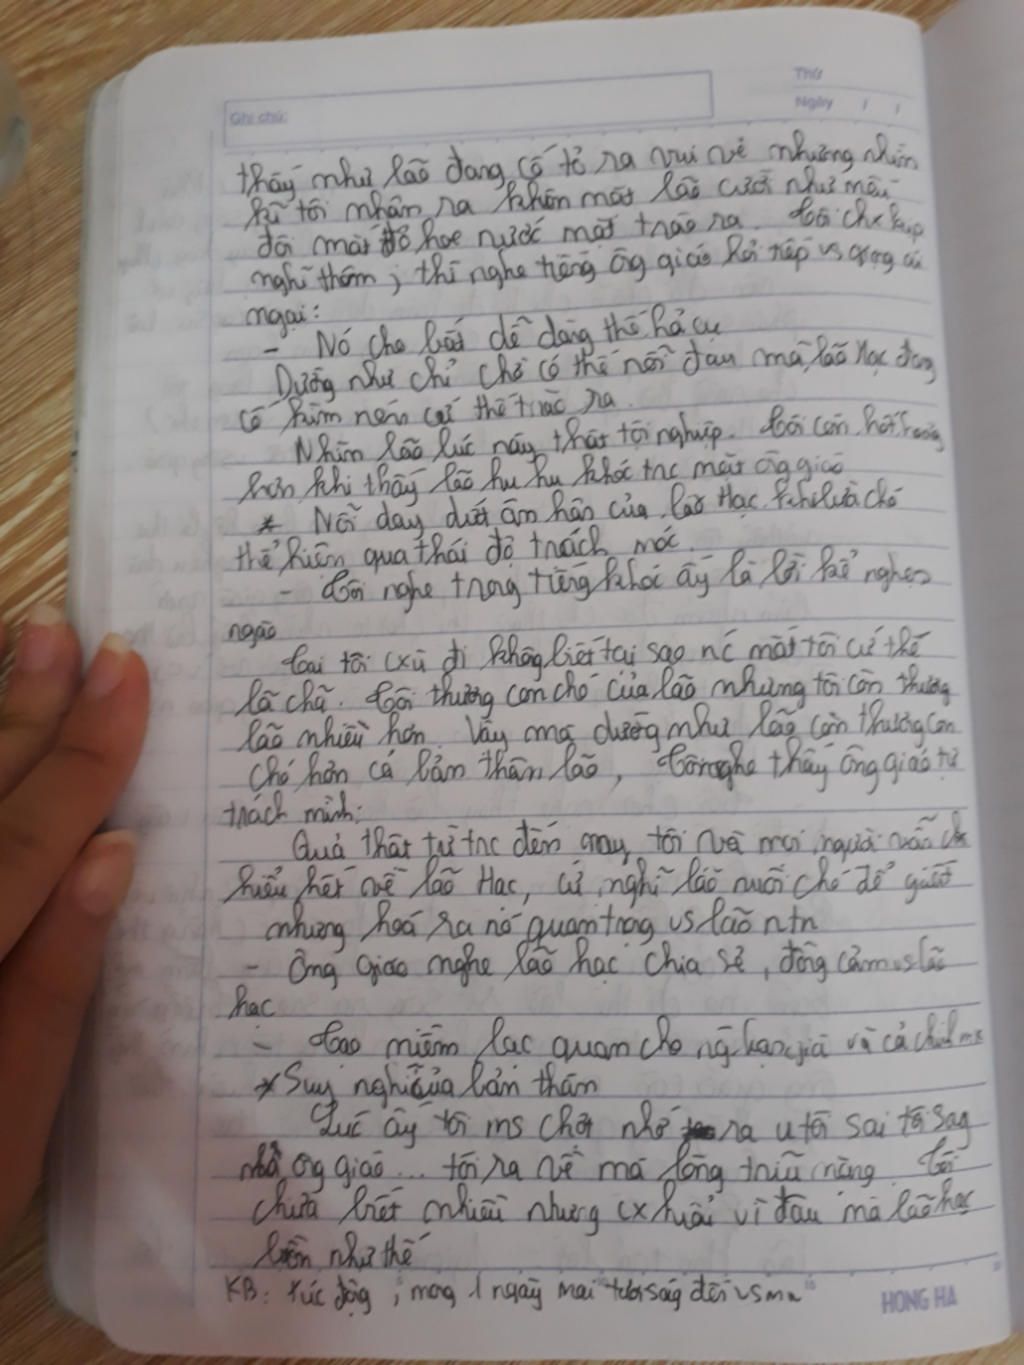 Thứ
Ngày / /
Ghi chú:
thấy như lão đang cố tỏ ra vui vẻ nhưng nhìn
kĩ tôi nhận ra khôn mặt lão cười như mếu
đôi mắt đỏ hoe nước mắt trào ra. Tôi chx kịp
nghĩ thêm, thì nghe tiếng ông giáo hỏi tiếp vs giọng ái
ngại:
- Nó cho bắt dễ dàng thế hả cụ
Dường như chỉ chờ có thế nỗi đau mà lão Hạc đang
cố kìm nén cứ thế trào ra.
Nhìn lão lúc này thật tội nghiệp. Tôi còn hốt hoảng
hơn khi thấy lão hu hu khóc trc mặt ông giáo
* Nỗi day dứt ân hận của lão Hạc khi lừa chó
thể hiện qua thái độ trách móc.
- Tôi nghe trong tiếng khóc ấy là lời kể nghẹn
ngào
Tai tôi cxù đi không biết tại sao nc mắt tôi cứ thế
lã chã. Tôi thương con chó của lão nhưng tôi còn thương
lão nhiều hơn. Vậy mà dường như lão còn thương con
chó hơn cả bản thân lão, Tôi nghe thấy ông giáo tự
trách mình:
Quả thật từ trc đến nay, tôi và mọi người vẫn chx
hiểu hết về lão Hạc, cứ nghĩ lão nuôi chó để giết
nhưng hoá ra nó quan trọng vs lão ntn
- Ông giáo nghe lão hạc chia sẻ, đồng cảm vs lão
hạc
- Tạo niềm lạc quan cho ng hàng già và cả chính mk
* Suy nghĩ của bản thân
Lúc ấy tôi ms chợt nhớ ra u tôi sai tôi sag
nhà ông giáo... tôi ra về mà lòng trĩu nặng. Tôi
chưa biết nhiều nhưng cx hiểu vì đâu mà lão hạc
buồn như thế
KB: xúc động, mong 1 ngày mai tươi sáng đến vs mn
HONG HA